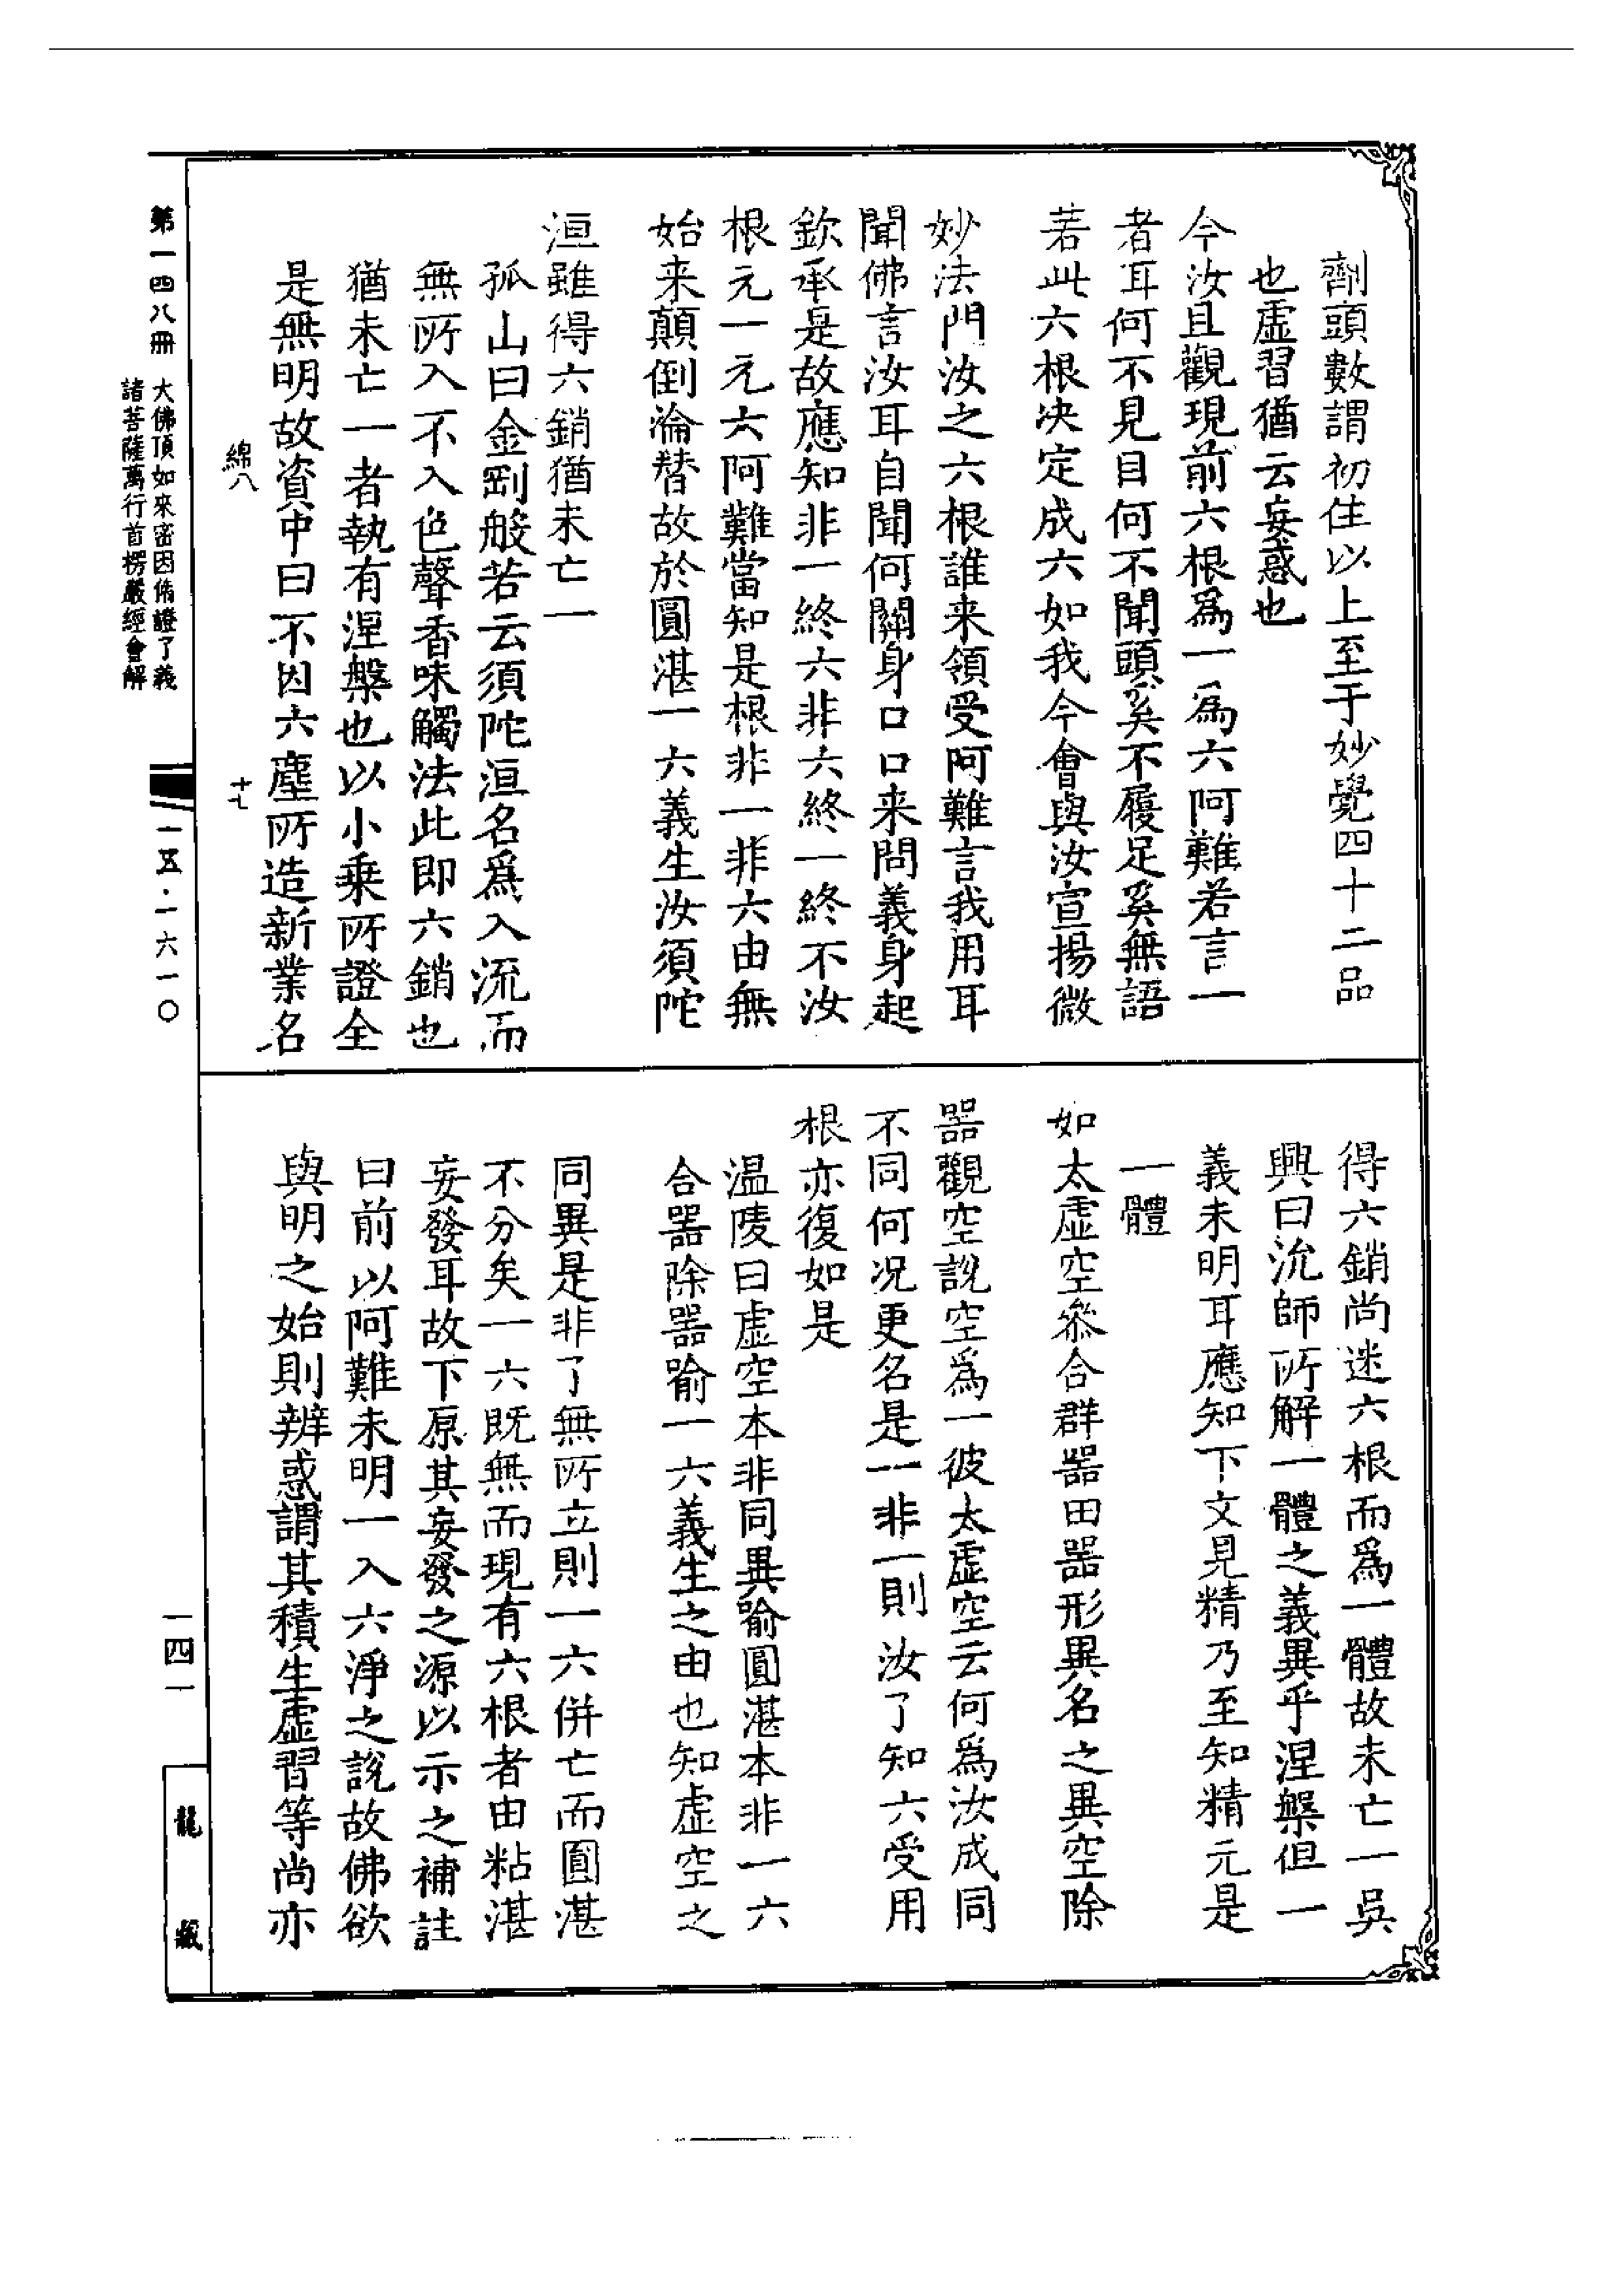 劑頭數謂初住以上至于妙覺四十二品
也虛習猶云妄惑也
今汝且觀現前六根爲一爲六阿難若言一
者耳何不見目何不聞頭奚不履足奚無語
若此六根決定成六如我今會與汝宣揚微
妙法門汝之六根誰来領受阿難言我用耳
聞佛言汝耳自聞何關身口口来問義身起
欽承是故應知非一終六非六終一終不汝
根元一元六阿難當知是根非一非六由無
始来顛倒淪替故於圓湛一六義生汝須陀
洹雖得六銷猶未亡一
孤山曰金剛般若云須陀洹名爲入流而
無所入不入色聲香味觸法此即六銷也
猶未亡一者執有涅槃也以小乗所證全
是無明故資中曰不因六塵所造新業名
得六銷尚迷六根而爲一體故未亡一吳
興曰沇師所解一體之義異乎涅槃但一
義未明耳應知下文見精乃至知精元是
一體
如太虛空叅合群器由器形異名之異空除
器觀空說空爲一彼太虛空云何爲汝成同
不同何况更名是一非一則汝了知六受用
根亦復如是
温陵曰虛空本非同異喻圓湛本非一六
合器除器喻一六義生之由也知虛空之
同異是非了無所立則一六併亡而圓湛
不分矣一六既無而現有六根者由粘湛
妄發耳故下原其妄發之源以示之補註
曰前以阿難未明一入六淨之說故佛欲
與明之始則辨惑謂其積生虛習等尚亦
綿八
十七
第一四八冊
大佛頂如來密因脩證了義
諸菩薩萬行首楞嚴經會解
一五·一六一〇
一四一
龍藏